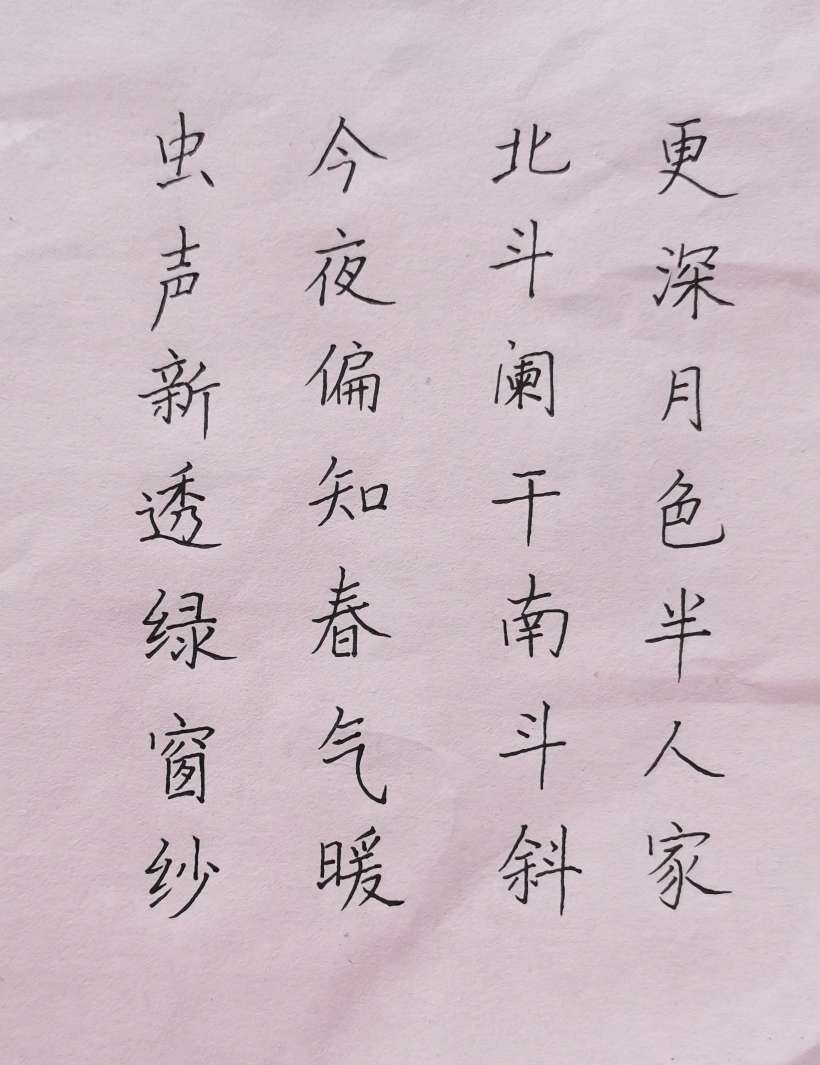 更深月色半人家
北斗阑干南斗斜
今夜偏知春气暖
虫声新透绿窗纱